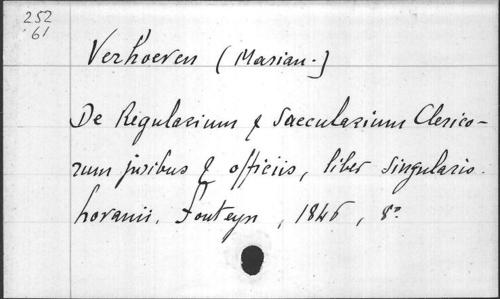 252
61
Verhoeven (Marian.)
De Regularium & Saecularium Clerico-
rum juribus & officiis, liber singularis.
Lovanii, Fonteyn, 1846, 8º